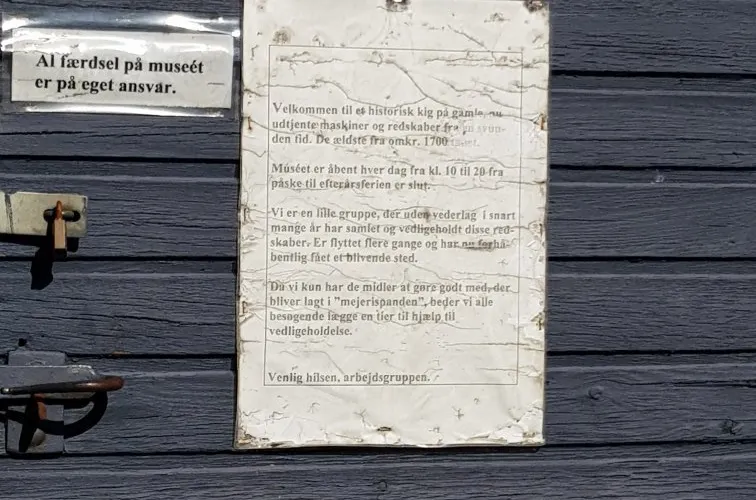 Al færdsel på museét
er på eget ansvar.
Velkommen til et historisk kig på gamle, nu
udtjente maskiner og redskaber fra en svun-
den tid. De ældste fra omkr. 1700
Muséet er åbent hver dag fra kl. 10 til 20 fra
påske til efterårsferien er slut.
Vi er en lille gruppe, der uden vederlag i snart
mange år har samlet og vedligeholdt disse red-
skaber. Er flyttet flere gange og har nu forhå-
bentlig fået et blivende sted.
Da vi kun har de midler at gøre godt med, der
bliver lagt i "mejerispanden", beder vi alle
besøgende lægge en tier til hjælp til
vedligeholdelse.
Venlig hilsen, arbejdsgruppen.